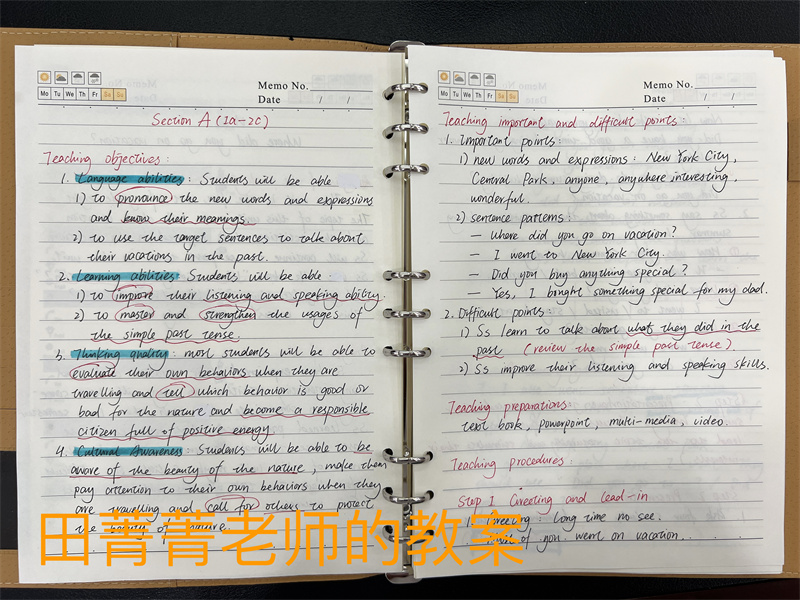 Memo No.
Mo Tu We Th Fr Sa Su
Date / /
Section A (1a-2c)
Teaching objectives:
1. Language abilities: Students will be able
1) to pronounce the new words and expressions
and know their meanings.
2) to use the target sentences to talk about
their vacations in the past.
2. Learning abilities: Students will be able
1) to improve their listening and speaking ability.
2) to master and strengthen the usages of
the simple past tense.
3. Thinking quality: most students will be able to
evaluate their own behaviors when they are
travelling and tell which behavior is good or
bad for the nature and become a responsible
citizen full of positive energy.
4. Cultural Awareness: Students will be able to be
aware of the beauty of the nature, make them
pay attention to their own behaviors when they
are travelling and call for others to protect
the beauty of nature.
Memo No.
Mo Tu We Th Fr Sa Su
Date / /
Teaching important and difficult points:
1. Important points:
1) new words and expressions: New York City,
Central Park, anyone, anywhere interesting,
wonderful.
2) sentence patterns:
— Where did you go on vacation?
— I went to New York City.
— Did you buy anything special?
— Yes, I bought something special for my dad.
2. Difficult points:
1) Ss learn to talk about what they did in the
past (review the simple past tense).
2) Ss improve their listening and speaking skills.
Teaching preparations
text book, powerpoint, multi-media, video.
Teaching procedures:
Step I Greeting and lead-in
1. Greeting: Long time no see.
of you went on vacation.
田菁菁老师的教案